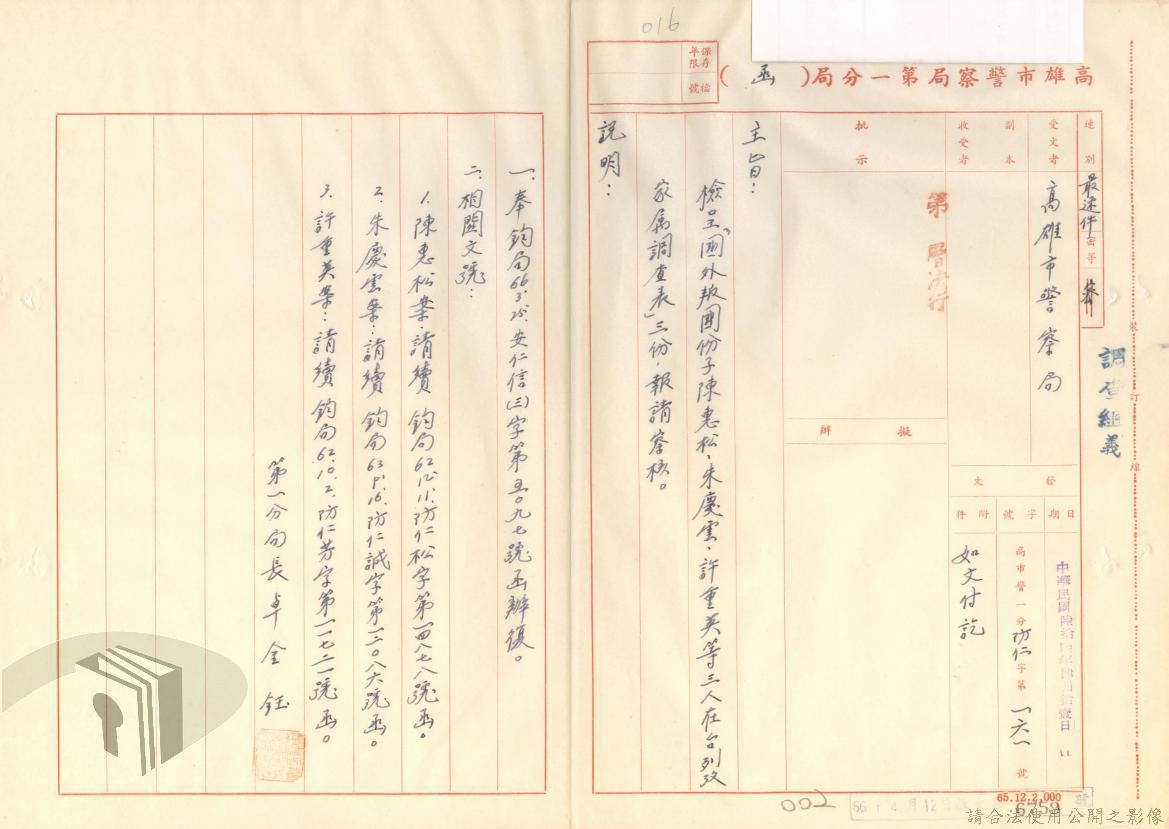 016
保存年限
檔號
高雄市警察局第一分局(函)
速別
最速件
密等
受文者
高雄市警察局
副本
收受者
批示
第層決行
擬辦
發文
日期
字號
附件
高市警一分防仁字第一六一號
如文付訖
調查組義
裝訂線
主旨：
檢呈「國外叛國份子陳惠松、朱慶雲、許重英等三人在台列攷
家属調查表」三份，報請察核。
說明：
一、奉鈞局66.3.25.安仁信(三)字第五○九七號函辦復。
二、相關文號：
1.陳惠松案：請續鈞局62.12.11.防仁松字第一四八七八號函。
2.朱慶雲案：請續鈞局63.9.16.防仁誠字第一二○八六號函。
3.許重英案：請續鈞局62.10.2.防仁芳字第一一七二一號函。
第一分局長卓金鈺
002
66年4月12日
65.12.2,000
6759
請合法使用公開之影像